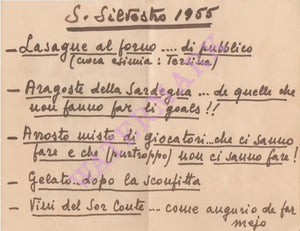 S. Silvestro 1955
– Lasagne al forno .... di pubblico
(cuoca esimia : Tersilia)
– Aragoste della Sardegna ... de quelle che
non fanno far li goals !!
– Arrosto misto di giocatori...che ci sanno
fare e che (purtroppo) non ci sanno fare !
– Gelato...dopo la sconfitta
– Vini del Sor Conte – come augurio de far
mejo